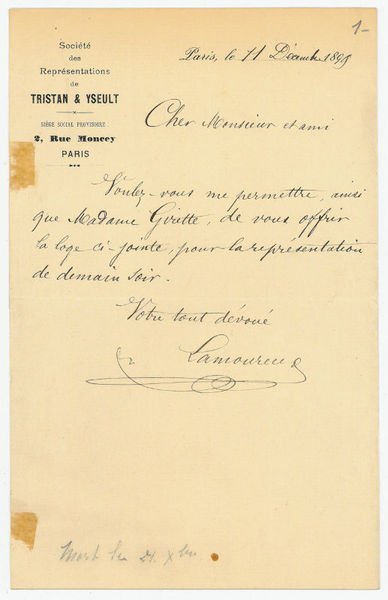 1-
Société
des
Représentations
de
TRISTAN & YSEULT
SIÈGE SOCIAL PROVISOIRE
2, Rue Moncey
PARIS
Paris, le 11 Décembre 1899
Cher Monsieur et ami
Voulez-vous me permettre, ainsi
que Madame Girette, de vous offrir
la loge ci-jointe, pour la représentation
de demain soir.
Votre tout dévoué
Lamoureux
Mort le 21 Xbre